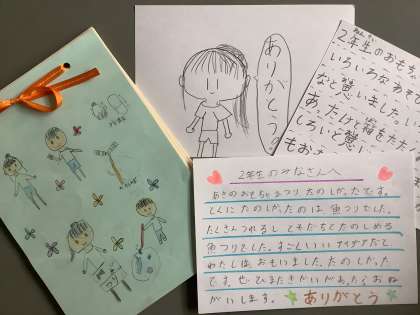 ありがとう
2年生のおもち
いろいろなあそ
なと感いました。い
あったけど箱をたた
しろいと感い
もおも
2年生のみなさんへ
あきのおもちゃまつりたのしかったです。
とくにたのしかったのは魚つりでした。
たくさんつれるしともだちとたのしめる
魚つりでした。すごくいいアイデアだと
わたしはおもいました。たのしかった
です。またきかいがあったらおね
がいします。
ありがとう